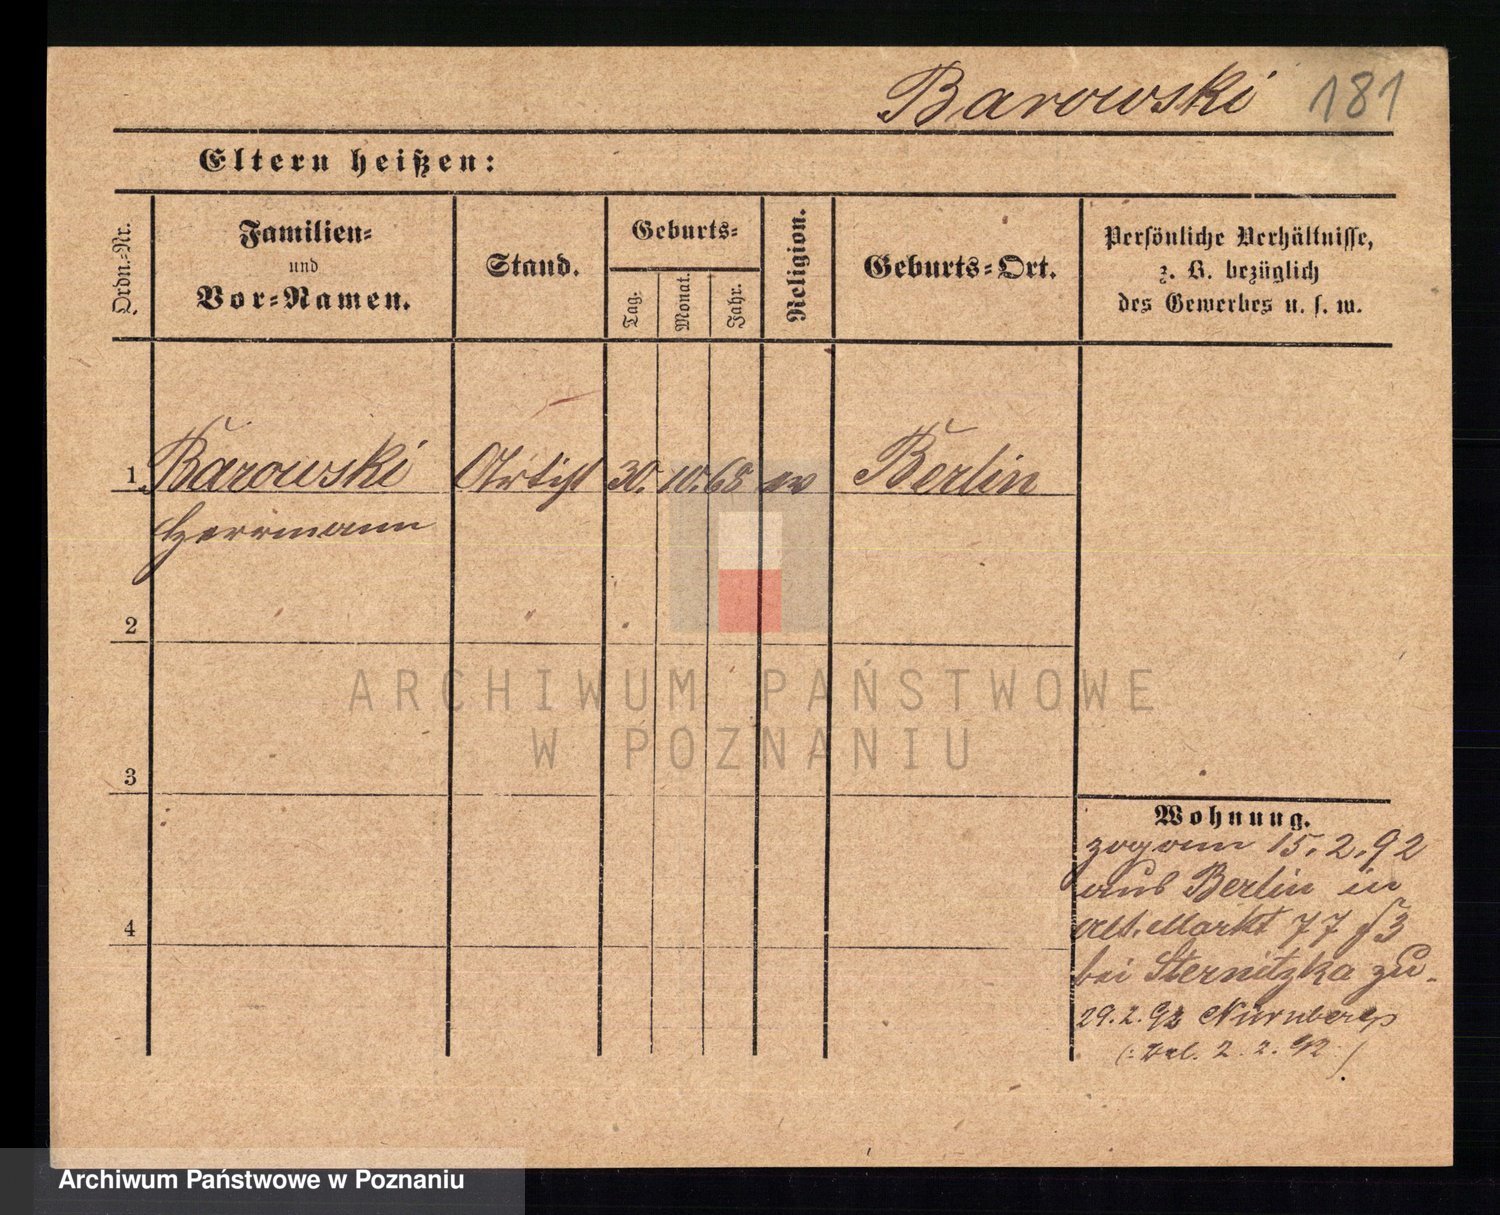 Barowski 181
Eltern heißen:
Ordn.-Nr.
Familien-
und
Vor-Namen.
Stand.
Geburts-
Tag.
Monat.
Jahr.
Religion.
Geburts-Ort.
Persönliche Verhältnisse,
z. B. bezüglich
des Gewerbes u. s. w.
1 Barowski Artist 30. 10. 68 ev Berlin
Herrmann
2
3
4
Wohnung.
zog am 15.2.92
aus Berlin in
Alt. Markt 77
bei Sternitzka zu.
29.2.92 Nürnberg
2. 2. 92
ARCHIWUM PAŃSTWOWE
W POZNANIU
Archiwum Państwowe w Poznaniu